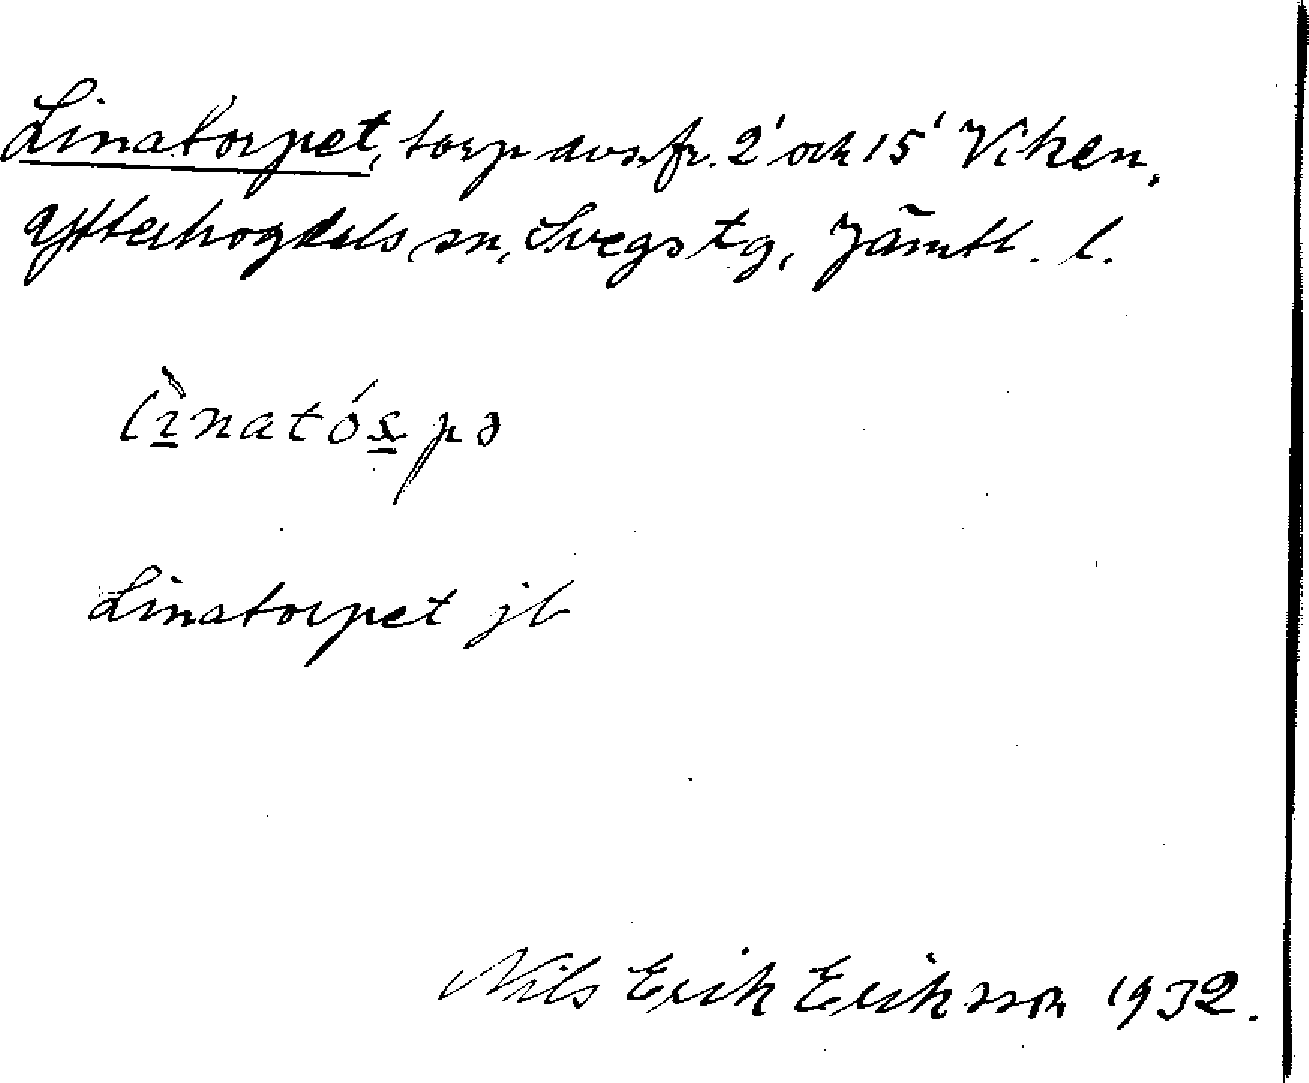 Linatorpet, torp avs. fr. 2' och 15' Viken,
Ytterhogdals sn, Svegs tg, Jämtl. l.
Linatorpet jb
Nils Erik Eriksson 1932.